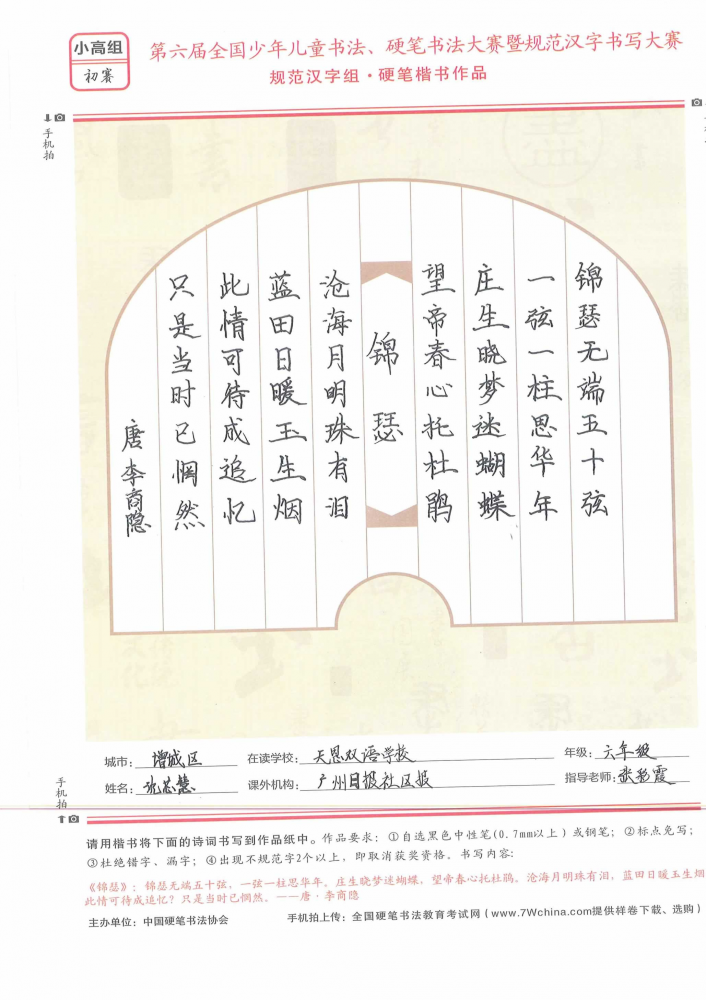 小高组
初赛
第六届全国少年儿童书法、硬笔书法大赛暨规范汉字书写大赛
规范汉字组·硬笔楷书作品
手机拍
锦瑟无端五十弦
一弦一柱思华年
庄生晓梦迷蝴蝶
望帝春心托杜鹃
锦瑟
沧海月明珠有泪
蓝田日暖玉生烟
此情可待成追忆
只是当时已惘然
唐李商隐
城市：增城区 在读学校：天恩双语学校 年级：六年级
姓名：张芯慧 课外机构：广州日报社区报 指导老师：张彩霞
手机拍
请用楷书将下面的诗词书写到作品纸中。作品要求：①自选黑色中性笔(0.7mm以上）或钢笔；②标点免写；
③杜绝错字、漏字；④出现不规范字2个以上，即取消获奖资格。书写内容：
《锦瑟》：锦瑟无端五十弦，一弦一柱思华年。庄生晓梦迷蝴蝶，望帝春心托杜鹃。沧海月明珠有泪，蓝田日暖玉生烟
此情可待成追忆？只是当时已惘然。——唐·李商隐
主办单位：中国硬笔书法协会 手机拍上传：全国硬笔书法教育考试网（www.7Wchina.com提供样卷下载、选购）